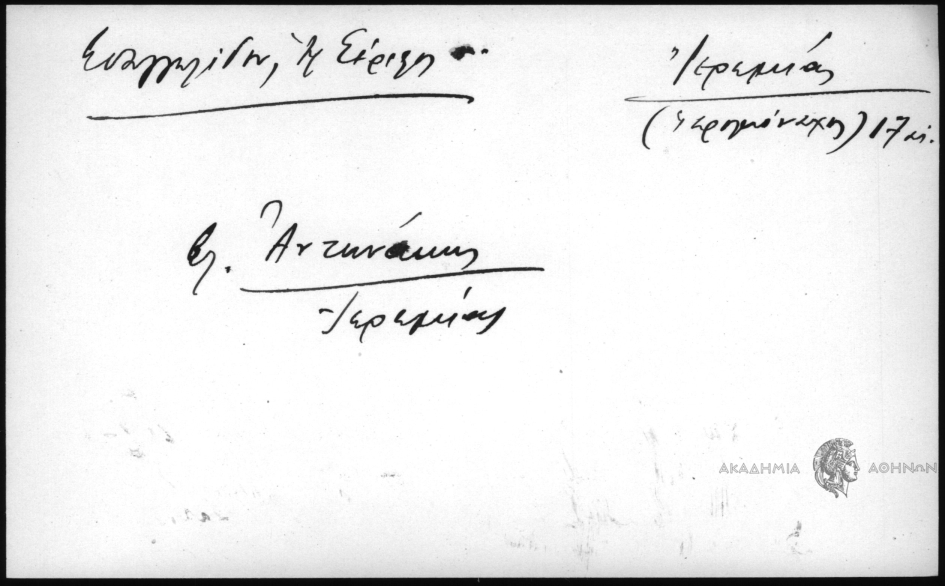 Ευαγγελίδου, Ἡ Σέριφος
Ἱερεμίας
(ἱερομόναχος) 17 αἰ.
βλ. Ἀντωνάκης
Ἱερεμίας
ΑΚΑΔΗΜΙΑ ΑΘΗΝΩΝ